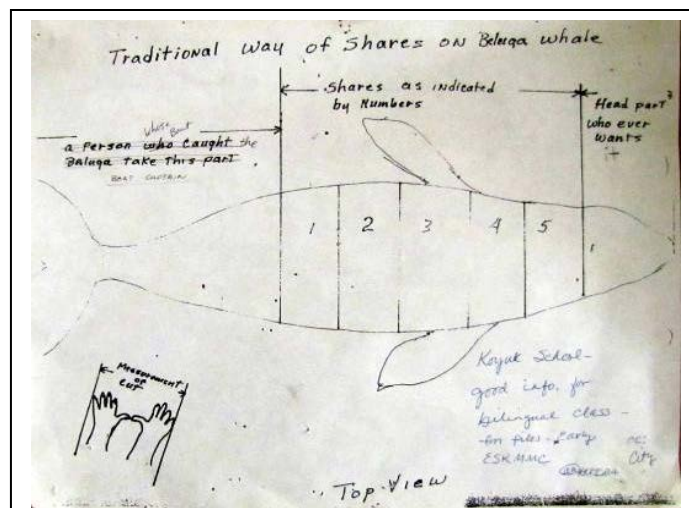 Traditional way of Shares on Beluga whale
Shares as indicated
by Numbers
Head part
who ever
wants
it
whose Boat
a Person who caught the
Baluga take this part
BOAT CAPTAIN
1 2 3 4 5
Measurement
of
cut
Koyuk School-
good info. for
bilingual class -
for files - Early
ESKMMC
cc:
City
Top-View